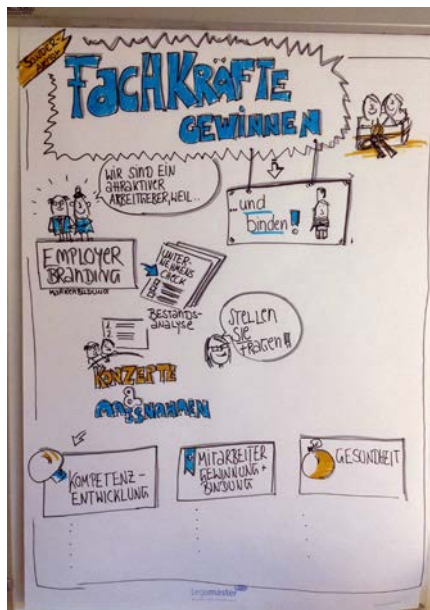 SONDER-
FACHKRÄFTE
GEWINNEN
WIR SIND EIN
ATTRAKTIVER
ARBEITGEBER, WEIL..
...und
binden!
EMPLOYER
BRANDING
MARKENBILDUNG
UNTER-
NEHMENS
CHECK
BESTANDS-
ANALYSE
1.
2.
STELLEN
SIE
FRAGEN!!
KONZEPTE
&
MASSNAHMEN
KOMPETENZ-
ENTWICKLUNG
MITARBEITER
GEWINNUNG +
BINDUNG
GESUNDHEIT
Legamaster